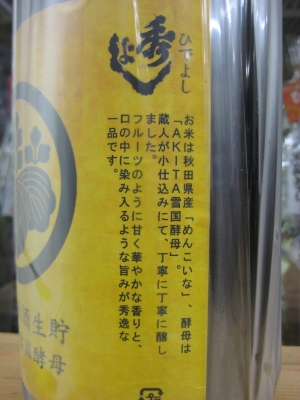 秀よし
ひでよし
お米は秋田県産「めんこいな」、酵母は
「AKITA雪国酵母」。
蔵人が小仕込みにて、丁寧に丁寧に醸し
ました。
フルーツのように甘く華やかな香りと、
口の中に染み入るような旨みが秀逸な
一品です。
酒生貯
酵母